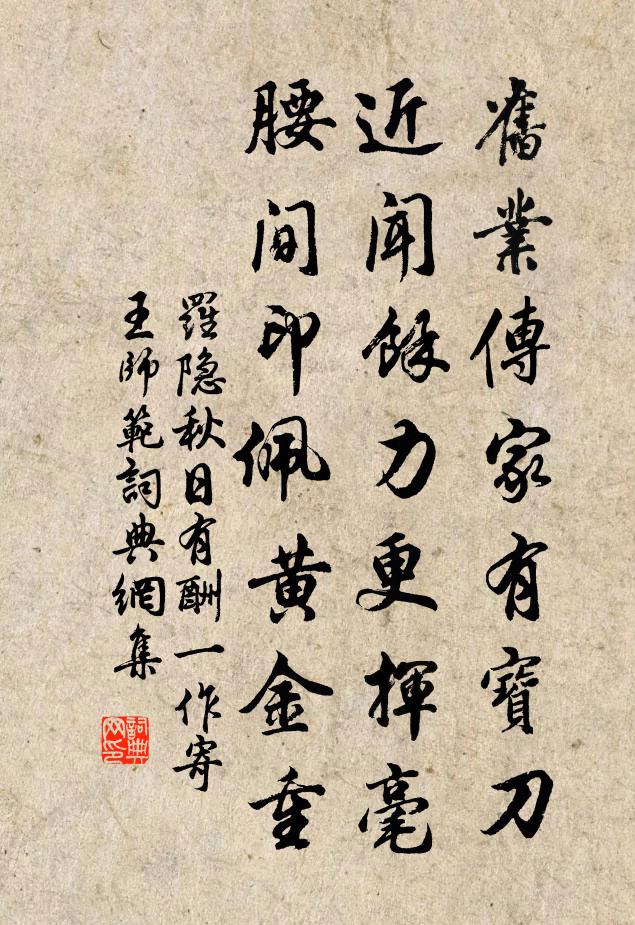 舊業傳家有寶刀
近聞餘力更揮毫
腰間印佩黃金重
羅隐秋日有酬一作寄
王師範詞典網集
詞典网印